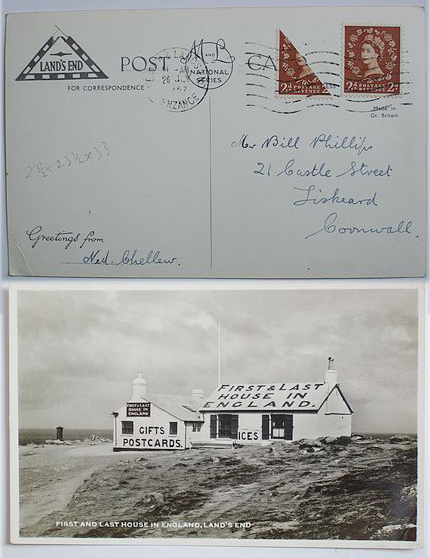 LAND'S END
POST CARD
M AND L
NATIONAL
SERIES
FOR CORRESPONDENCE
PENZANCE
2D POSTAGE REVENUE
2D POSTAGE REVENUE 2D
Made in
Gt. Britain
Mr Bill Phillips
21 Castle Street
Liskeard
Cornwall.
23½ x 23½ x 33
Greetings from
Ned. Chellew.
FIRST & LAST
HOUSE IN
ENGLAND
GIFTS
POSTCARDS.
FIRST & LAST
HOUSE IN
ENGLAND.
ICES
FIRST AND LAST HOUSE IN ENGLAND, LAND'S END